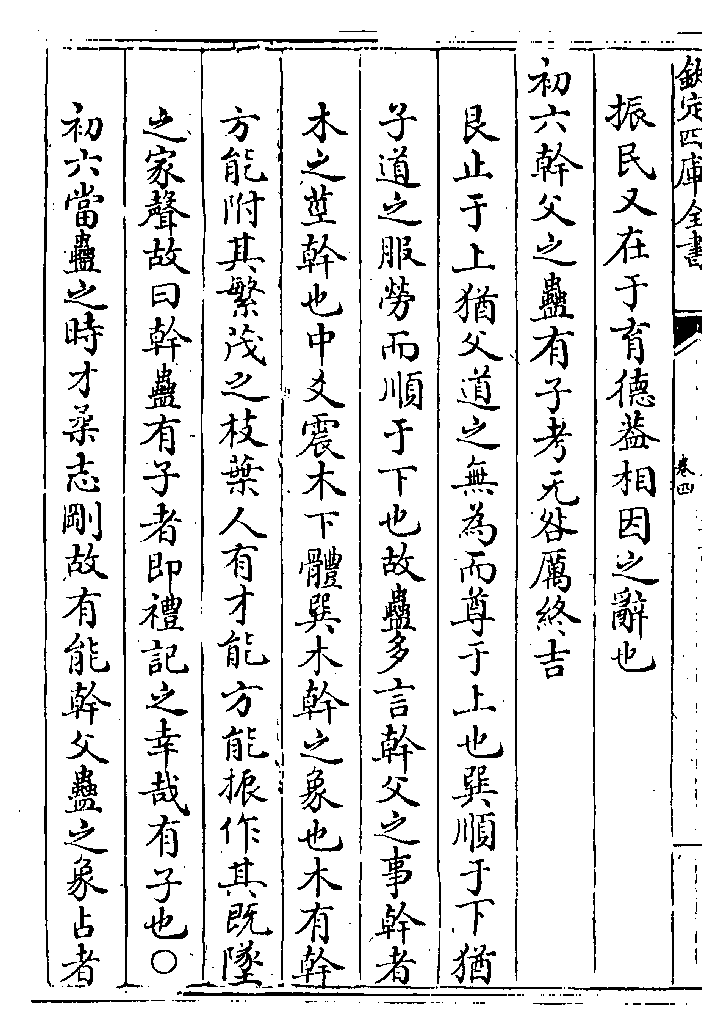 欽定四庫全書
卷四
振民又在于育德葢相因之辭也
初六幹父之蠱有子考无咎厲終吉
艮止于上猶父道之無為而尊于上也巽順于下猶
子道之服勞而順于下也故蠱多言幹父之事幹者
木之莖幹也中爻震木下體巽木幹之象也木有幹
方能附其繁茂之枝葉人有才能方能振作其既墜
之家聲故曰幹蠱有子者即禮記之幸哉有子也○
初六當蠱之時才柔志剛故有能幹父蠱之象占者